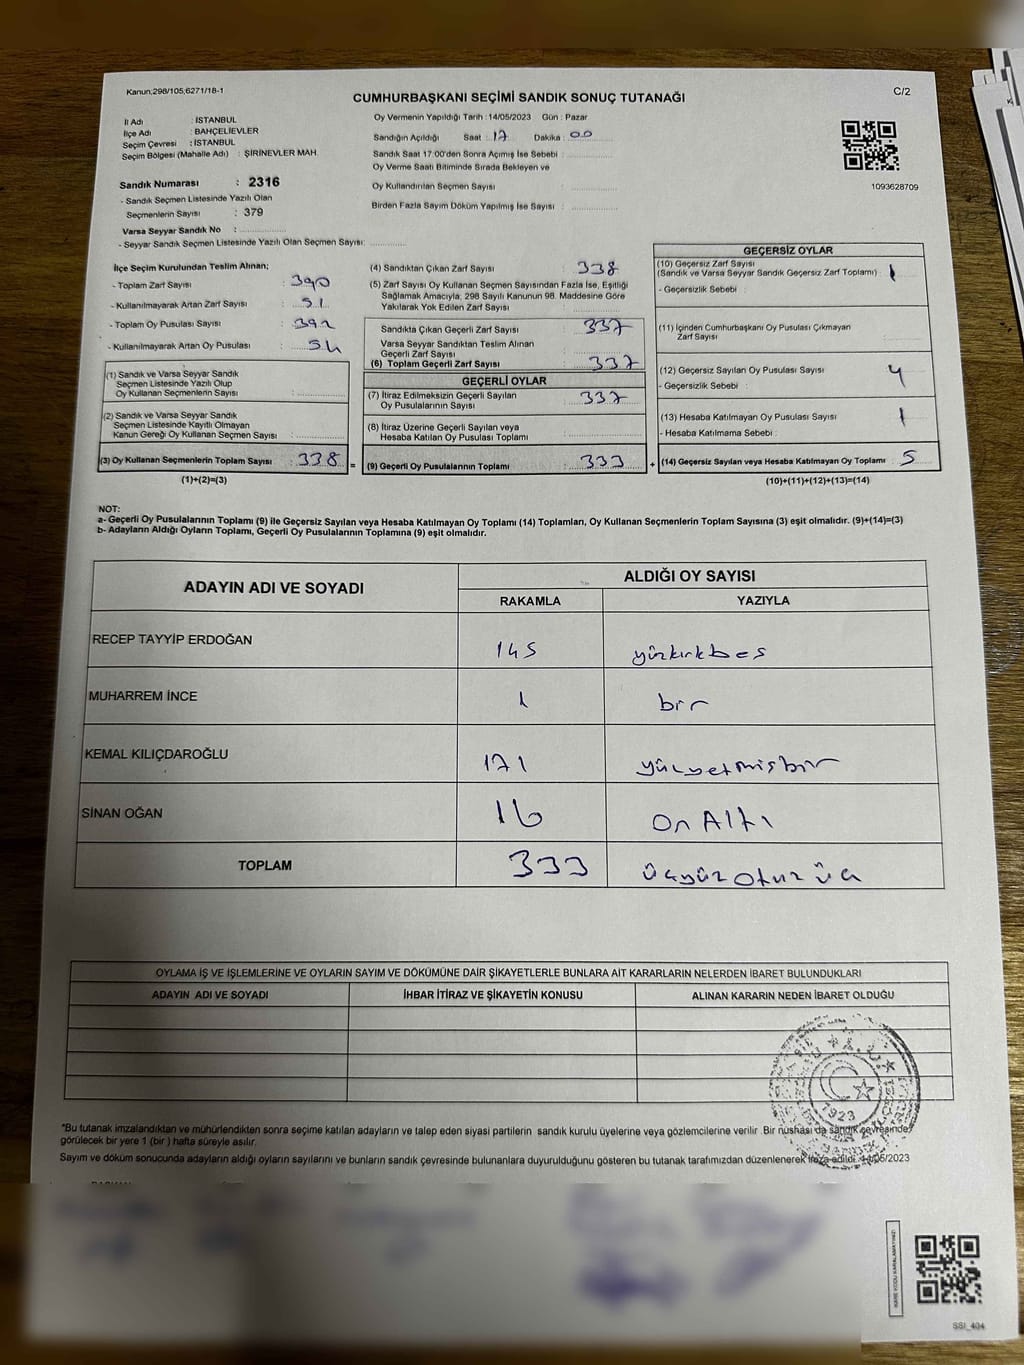 Kanun;298/105,6271/18-1
C/2
CUMHURBAŞKANI SEÇİMİ SANDIK SONUÇ TUTANAĞI
İl Adı : İSTANBUL
İlçe Adı : BAHÇELİEVLER
Seçim Çevresi : İSTANBUL
Seçim Bölgesi (Mahalle Adı) : ŞİRİNEVLER MAH.
Oy Vermenin Yapıldığı Tarih :14/05/2023 Gün : Pazar
Sandığın Açıldığı Saat : 17 Dakika : 00
Sandık Saat 17.00'den Sonra Açımış İse Sebebi :
Oy Verme Saati Bitiminde Sırada Bekleyen ve
Oy Kullandırılan Seçmen Sayısı :
Birden Fazla Sayım Döküm Yapılmış İse Sayısı :
1093628709
Sandık Numarası : 2316
- Sandık Seçmen Listesinde Yazılı Olan
Seçmenlerin Sayısı : 379
Varsa Seyyar Sandık No :
- Seyyar Sandık Seçmen Listesinde Yazılı Olan Seçmen Sayısı:
İlçe Seçim Kurulundan Teslim Alınan;
- Toplam Zarf Sayısı : 390
- Kullanılmayarak Artan Zarf Sayısı : 51
- Toplam Oy Pusulası Sayısı : 392
- Kullanılmayarak Artan Oy Pusulası : 54
(1) Sandık ve Varsa Seyyar Sandık
Seçmen Listesinde Yazılı Olup
Oy Kullanan Seçmenlerin Sayısı :
(2) Sandık ve Varsa Seyyar Sandık
Seçmen Listesinde Kayıtlı Olmayan
Kanun Gereği Oy Kullanan Seçmen Sayısı :
(3) Oy Kullanan Seçmenlerin Toplam Sayısı : 338
(1)+(2)=(3)
(4) Sandıktan Çıkan Zarf Sayısı : 338
(5) Zarf Sayısı Oy Kullanan Seçmen Sayısından Fazla İse, Eşitliği
Sağlamak Amacıyla, 298 Sayılı Kanunun 98. Maddesine Göre
Yakılarak Yok Edilen Zarf Sayısı :
Sandıkta Çıkan Geçerli Zarf Sayısı : 337
Varsa Seyyar Sandıktan Teslim Alınan
Geçerli Zarf Sayısı :
(6) Toplam Geçerli Zarf Sayısı : 337
GEÇERLİ OYLAR
(7) İtiraz Edilmeksizin Geçerli Sayılan
Oy Pusulalarının Sayısı : 337
(8) İtiraz Üzerine Geçerli Sayılan veya
Hesaba Katılan Oy Pusulası Toplamı :
= (9) Geçerli Oy Pusulalarının Toplamı : 333 +
GEÇERSİZ OYLAR
(10) Geçersiz Zarf Sayısı
(Sandık ve Varsa Seyyar Sandık Geçersiz Zarf Toplamı) : 1
- Geçersizlik Sebebi :
(11) İçinden Cumhurbaşkanı Oy Pusulası Çıkmayan
Zarf Sayısı :
(12) Geçersiz Sayılan Oy Pusulası Sayısı : 4
- Geçersizlik Sebebi :
(13) Hesaba Katılmayan Oy Pusulası Sayısı : 1
- Hesaba Katılmama Sebebi :
(14) Geçersiz Sayılan veya Hesaba Katılmayan Oy Toplamı : 5
(10)+(11)+(12)+(13)=(14)
NOT:
a- Geçerli Oy Pusulalarının Toplamı (9) ile Geçersiz Sayılan veya Hesaba Katılmayan Oy Toplamı (14) Toplamları, Oy Kullanan Seçmenlerin Toplam Sayısına (3) eşit olmalıdır. (9)+(14)=(3)
b- Adayların Aldığı Oyların Toplamı, Geçerli Oy Pusulalarının Toplamına (9) eşit olmalıdır.
ADAYIN ADI VE SOYADI
ALDIĞI OY SAYISI
RAKAMLA YAZIYLA
RECEP TAYYİP ERDOĞAN 145 yüzkırkbeş
MUHARREM İNCE 1 bir
KEMAL KILIÇDAROĞLU 171 yüzyetmişbir
SİNAN OĞAN 16 On Altı
TOPLAM 333 üçyüz otuz üç
OYLAMA İŞ VE İŞLEMLERİNE VE OYLARIN SAYIM VE DÖKÜMÜNE DAİR ŞİKAYETLERLE BUNLARA AİT KARARLARIN NELERDEN İBARET BULUNDUKLARI
ADAYIN ADI VE SOYADI İHBAR İTİRAZ VE ŞİKAYETİN KONUSU ALINAN KARARIN NEDEN İBARET OLDUĞU
1923
"Bu tutanak imzalandıktan ve mühürlendikten sonra seçime katılan adayların ve talep eden siyasi partilerin sandık kurulu üyelerine veya gözlemcilerine verilir .Bir nüshası da sandık çevresinde,
görülecek bir yere 1 (bir ) hafta süreyle asılır.
Sayım ve döküm sonucunda adayların aldığı oyların sayılarını ve bunların sandık çevresinde bulunanlara duyurulduğunu gösteren bu tutanak tarafımızdan düzenlenerek imza edildi. 14/05/2023
KARE KODU KARALAMAYINIZ!
SSI_404